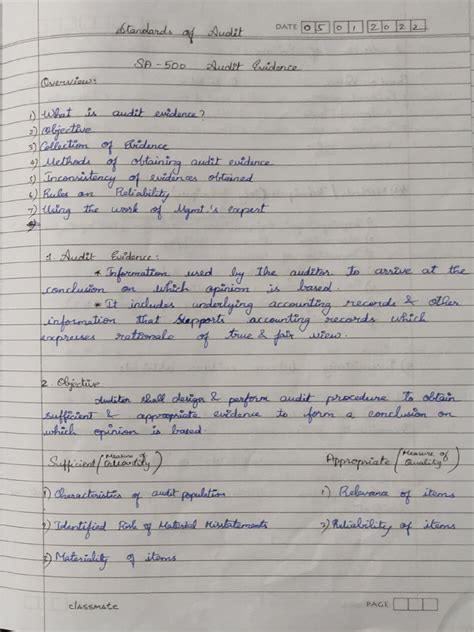 Standards of Audit
DATE 05 01 2022
SA - 500 Audit Evidence
Overview:
1) What is audit evidence?
2) Objective
3) Collection of Evidence
4) Methods of obtaining audit evidence
5) Inconsistency of evidences obtained
6) Rules on Reliability
7) Using the work of Mgmt.'s expert
1. Audit Evidence:
* Information used by the auditor to arrive at the
conclusion on which opinion is based.
* It includes underlying accounting records & other
information that supports accounting records which
expresses rationale of true & fair view.
2. Objective
Auditor shall design & perform audit procedure to obtain
sufficient & appropriate evidence to form a conclusion on
which opinion is based.
Sufficient (Measure of Quantity) Appropriate (Measure of Quality)
1) Characteristics of audit population 1) Relevance of items
2) Identified Risk of Material Misstatements 2) Reliability of items
3) Materiality of items
classmate
PAGE